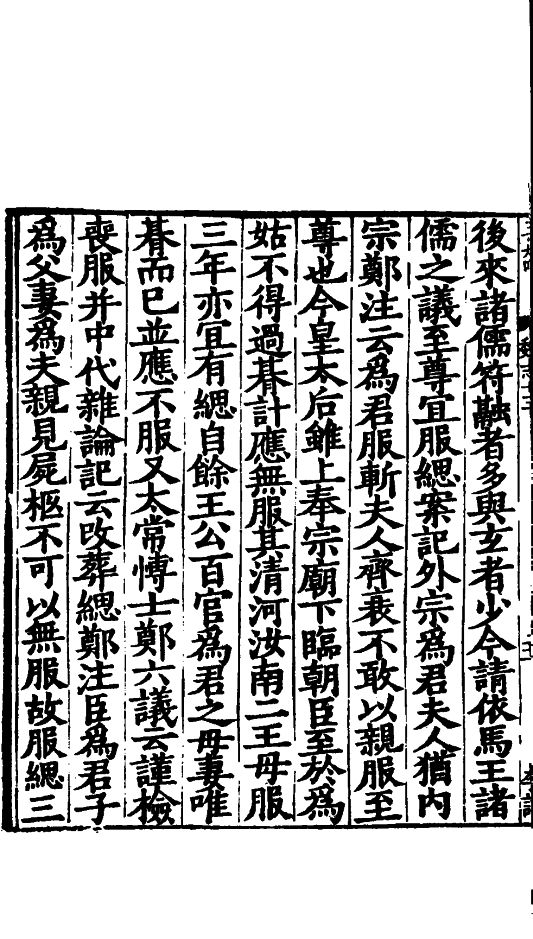 後來諸儒符融者多與玄者少今請依馬王諸
儒之議至尊宜服緦案記外宗爲君夫人猶内
宗鄭注云爲君服斬夫人齊衰不敢以親服至
尊也今皇太后雖上奉宗廟下臨朝臣至於爲
姑不得過朞計應無服其清河汝南二王母服
三年亦宜有緦自餘王公百官爲君之母妻唯
朞而已並應不服又太常愽士鄭六議云謹檢
喪服并中代雜論記云攺葬緦鄭注臣爲君子
爲父妻爲夫親見屍柩不可以無服故服緦三